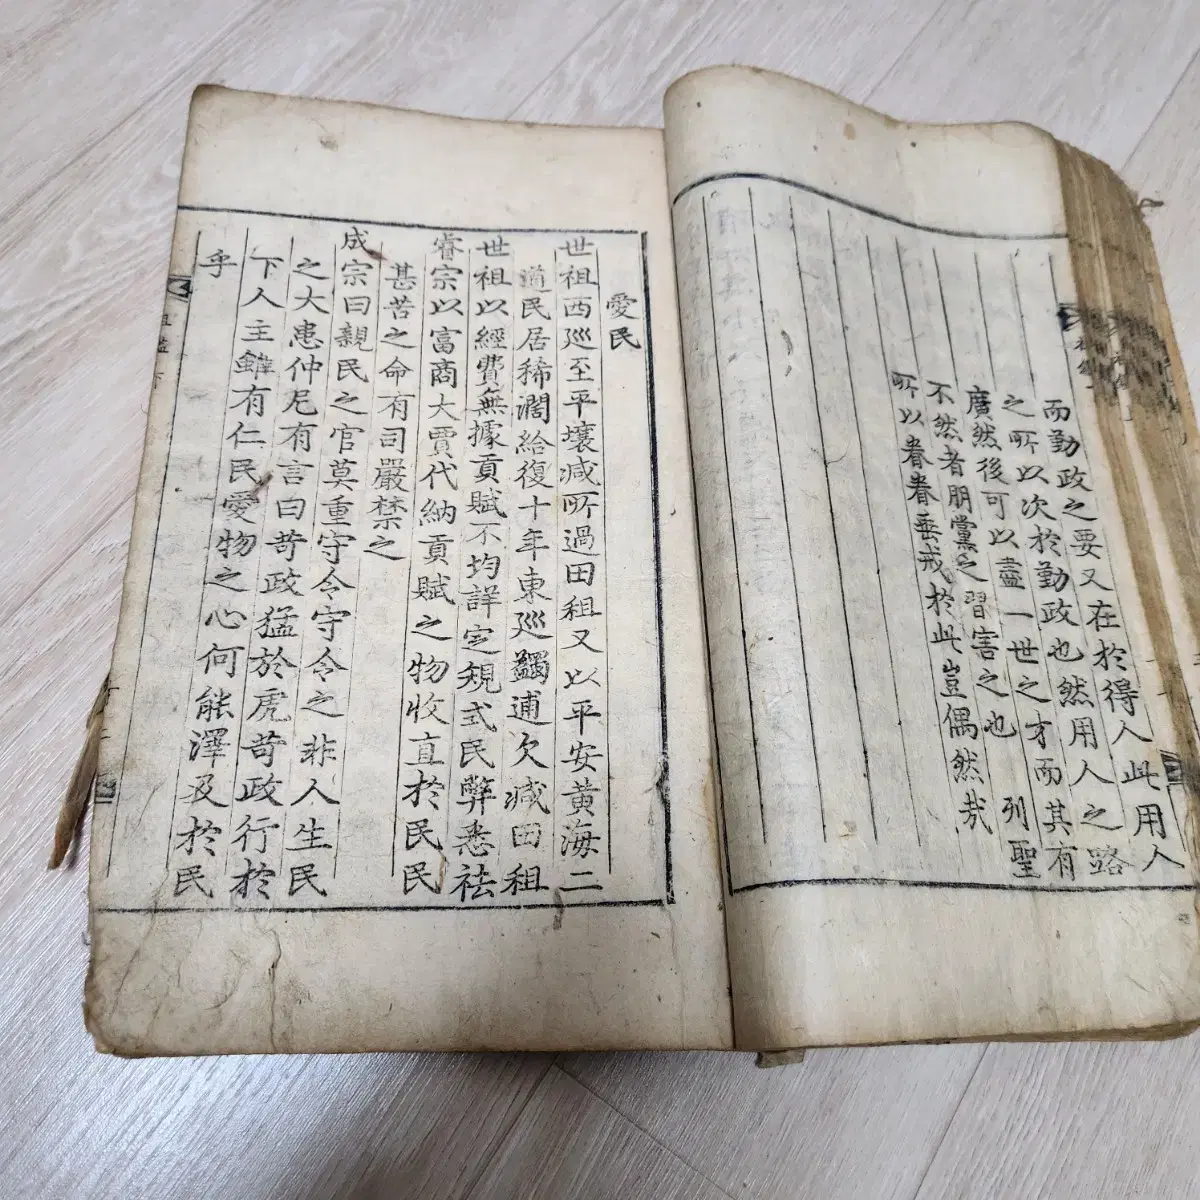 而勤政之要又在於得人此用人
之所以次於勤政也然用人之路
廣然後可以盡一世之才而其有
不然者朋黨之習害之也 列聖
所以眷眷垂戒於此豈偶然哉
愛民
世祖西廵至平壤减所過田租又以平安黃海二
道民居稀濶給復十年東廵蠲逋欠减田租
世祖以經費無據貢賦不均詳定規式民弊悉祛
睿宗以富商大賈代納貢賦之物收直於民民
甚苦之命有司嚴禁之
成宗曰親民之官莫重守令守令之非人生民
之大患仲尼有言曰苛政猛於虎苛政行於
下人主雖有仁民愛物之心何能澤及於民
乎
祖鑑 下